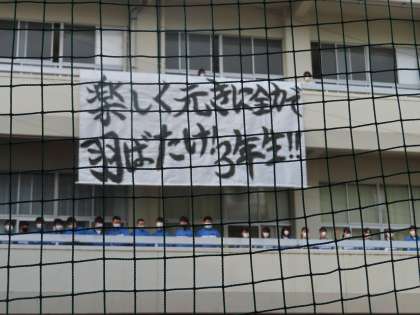 楽しく元きに全力で
羽ばたけ!3年生!!